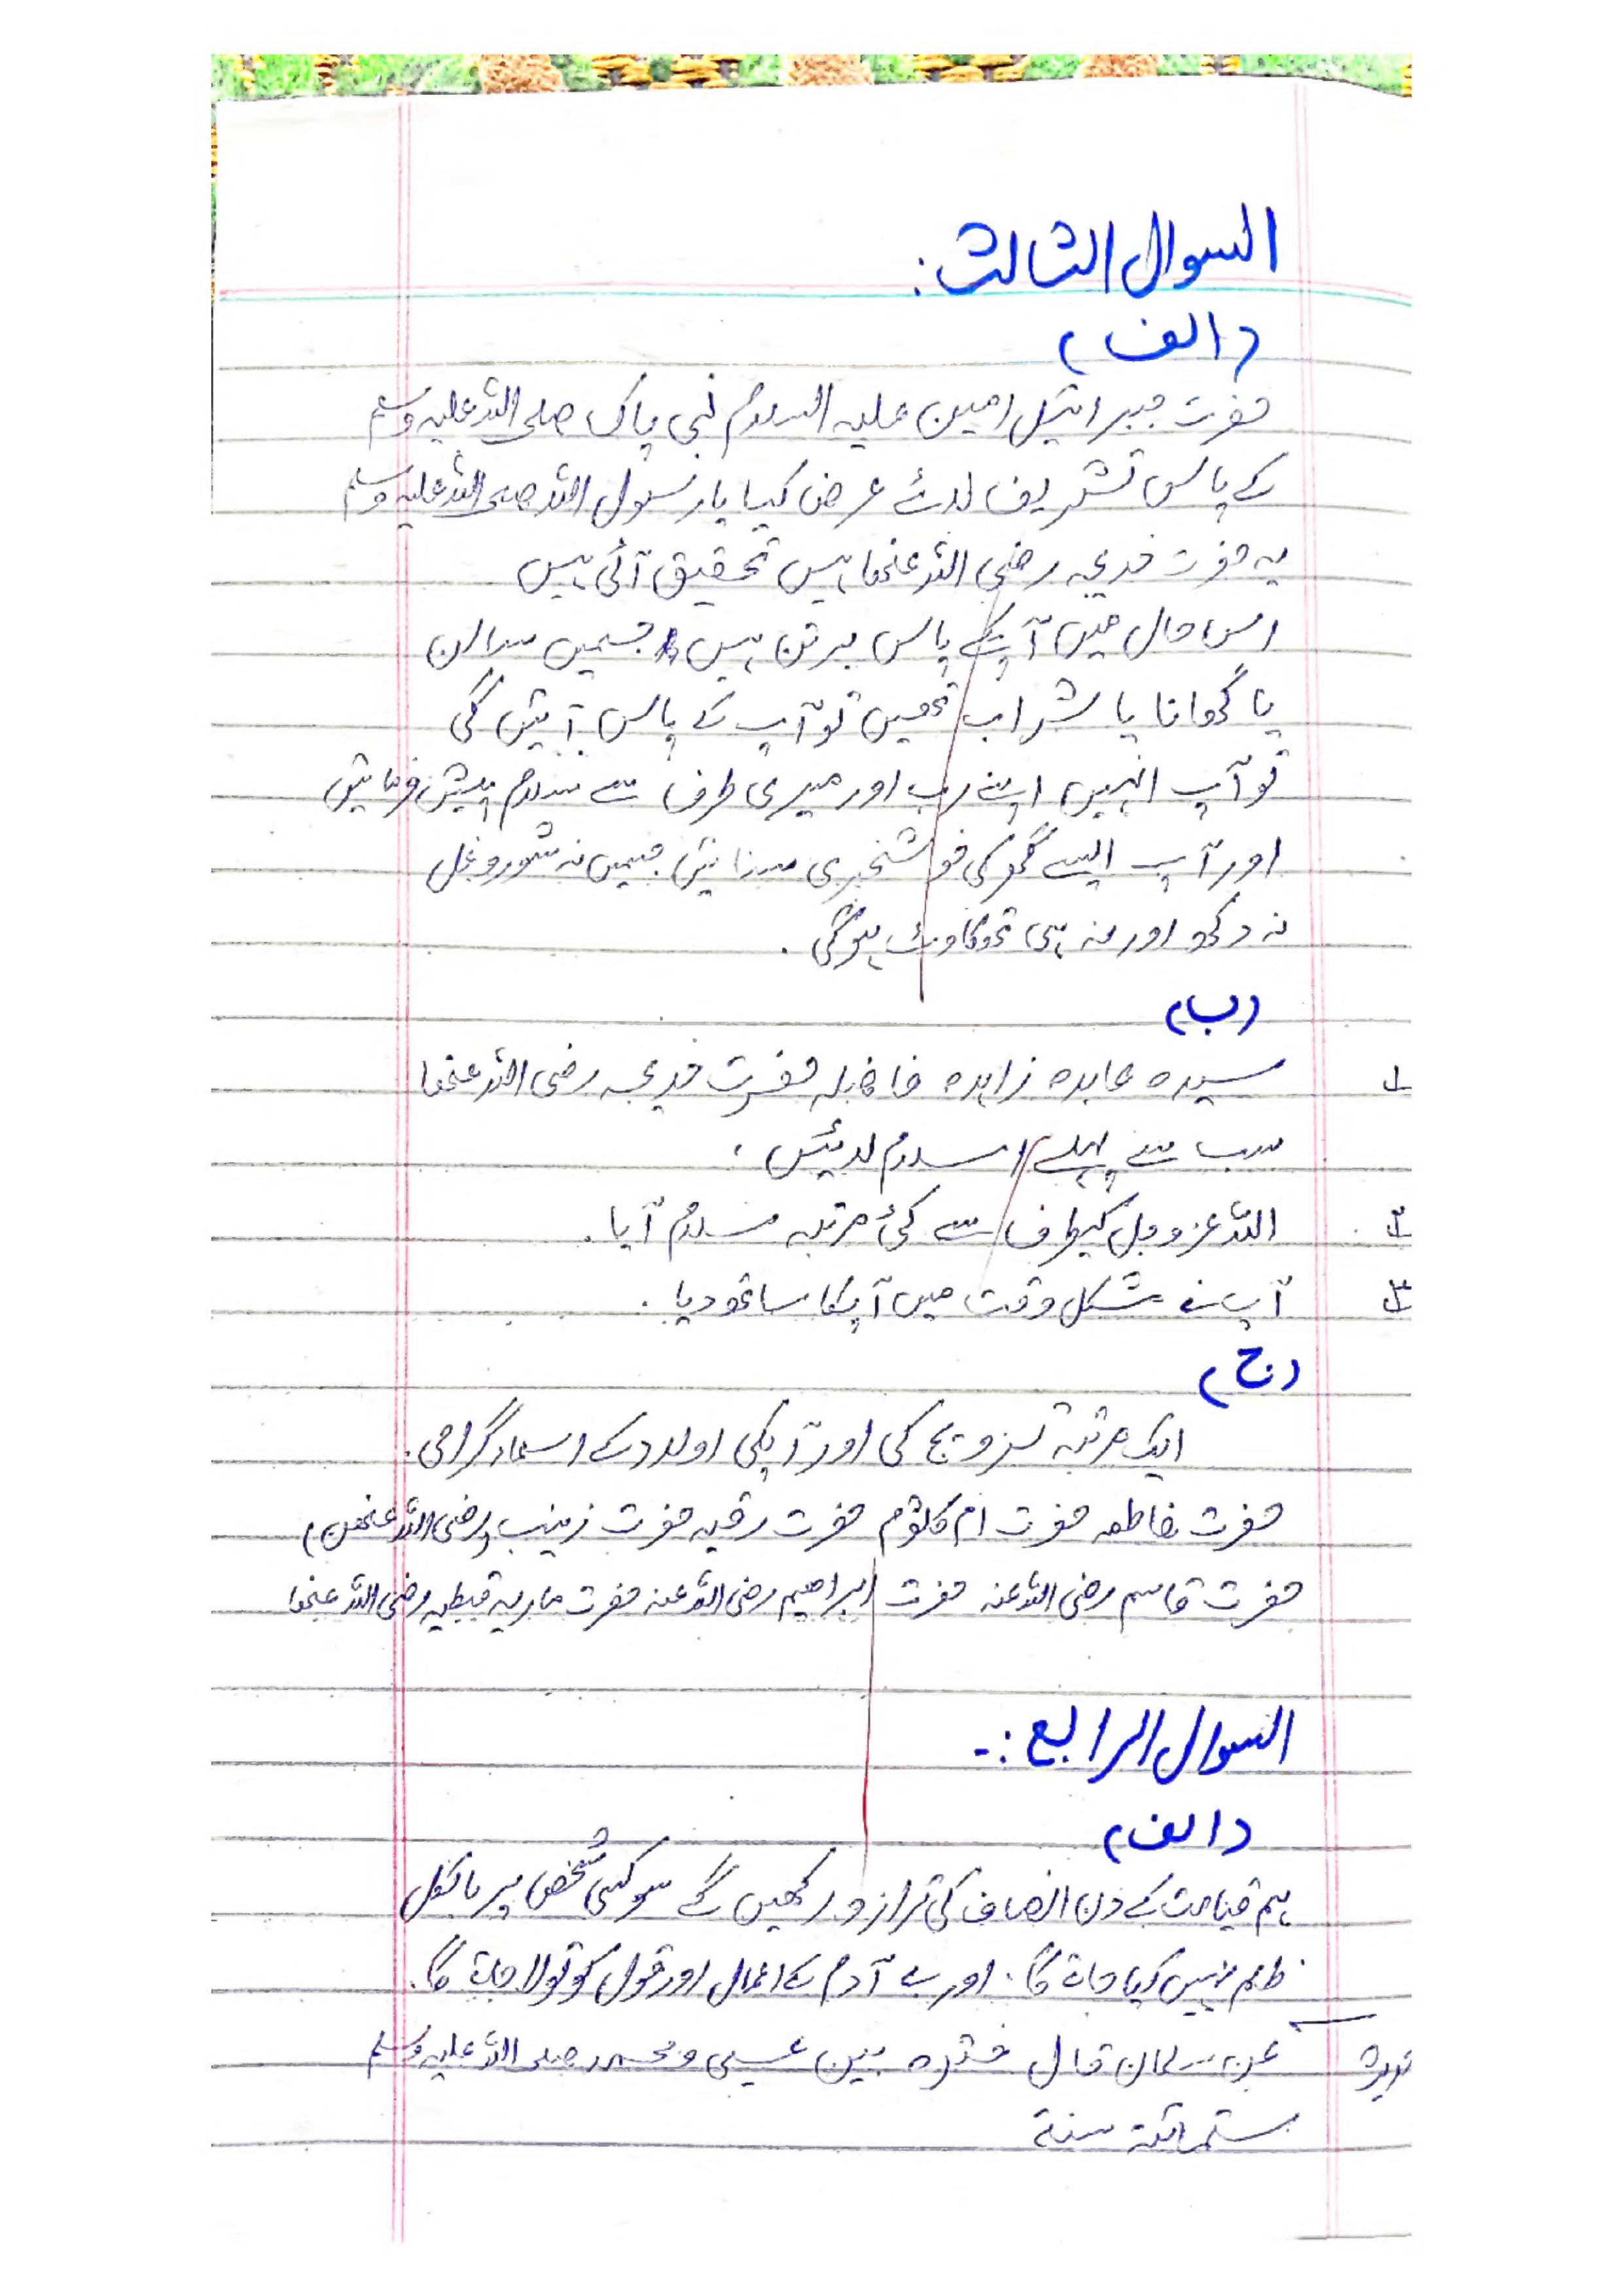 السوال الثالث:
(الف)
حضرت جبرائیل امین علیہ السلام نبی پاک صلی اللہ علیہ وسلم
کے پاس تشریف لائے عرض کیا یا رسول اللہ صلی اللہ علیہ وسلم
یہ حضرت خدیجہ رضی اللہ عنھا ہیں تحقیق آئی ہیں
اس حال میں آپکے پاس برتن ہیں جسمیں سالن
یا کھانا یا شراب تھیں تو آپ کے پاس آئیں گی
تو آپ انہیں اپنے رب اور میری طرف سے سلام پیش فرمائیں
اور آپ ایسے گھر کی خوشخبری سنائیں جسمیں نہ شوروغل
نہ دکھ اور نہ ہی تھکاوٹ ہوگی.
(ب)
۱ سیدہ عابدہ زاہدہ فاضلہ حضرت خدیجہ رضی اللہ عنھا
سب سے پہلے اسلام لائیں.
۲ اللہ عزوجل کیطرف سے کئ مرتبہ سلام آیا.
۳ آپ نے مشکل وقت میں آپکا ساتھ دیا.
(ج)
ایک مرتبہ تزویج کی اور آپکی اولاد کے اسماء گرامی.
حضرت فاطمہ حضرت ام کلثوم حضرت رقیہ حضرت زینب (رضی اللہ عنھن)
حضرت قاسم رضی اللہ عنہ حضرت ابراھیم رضی اللہ عنہ حضرت ماریہ قبطیہ رضی اللہ عنھا
السوال الرابع:-
(الف)
ہم قیامت کے دن انصاف کی ترازو رکھیں گے سو کسی شخص پر بالکل
ظلم نہیں کیا جائے گا. اور بے آدم کے اعمال اور قول کو تولا جائے گا.
عن سلمان قال فترہ بین عیسی و محمد صلی اللہ علیہ وسلم
ستمائة سنة